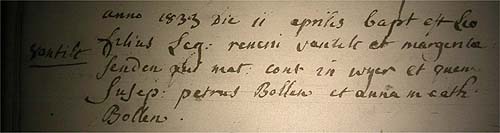 anno 1833 Die ii aprilis bapt est Leo
Vantilt filius Leg: renerii vantilt et margareta
senden pat mat: cont in wyer et quem
Susep: petrus Bollen et anna m cath:
Bollen.